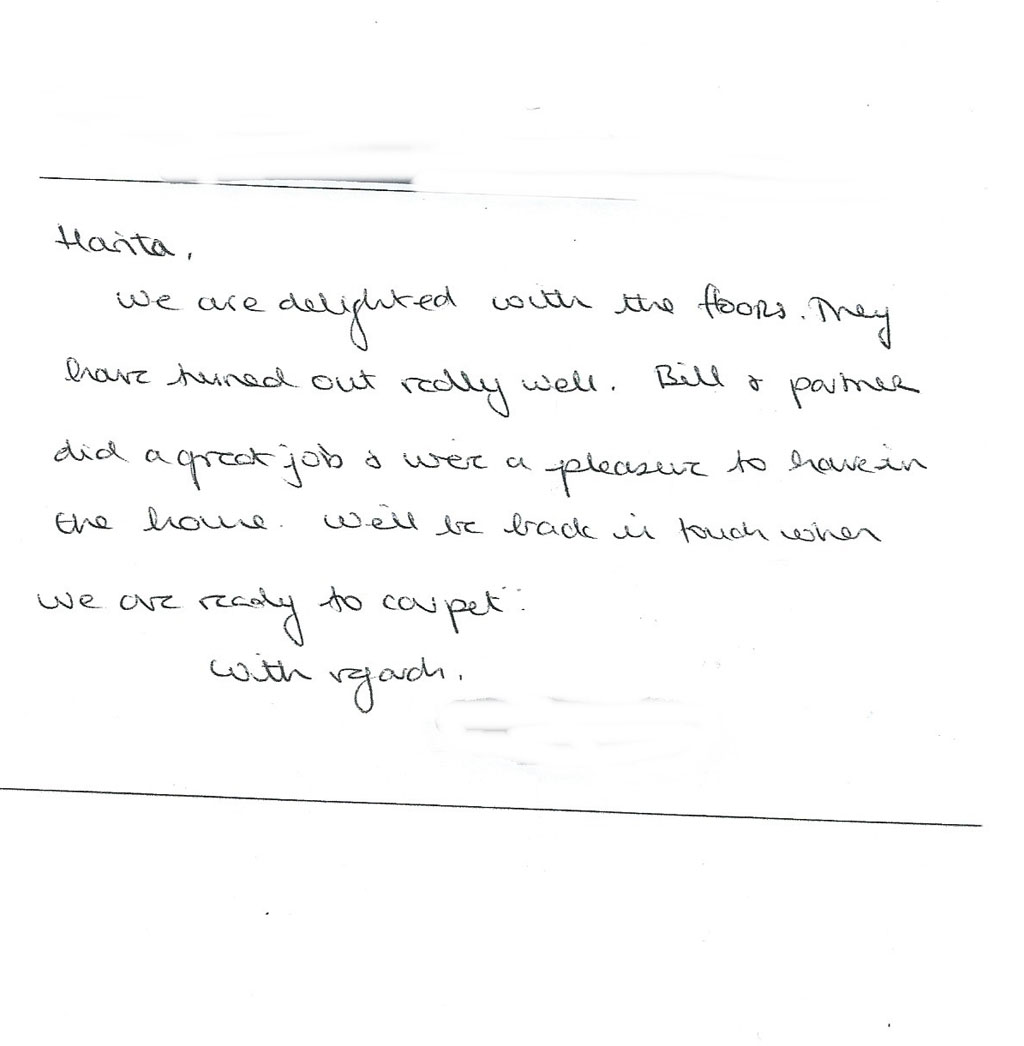 Harita,
We are delighted with the floors. They
have turned out really well. Bill & partner
did a great job & were a pleasure to have in
the house. We'll be back in touch when
we are ready to carpet.
With regards.